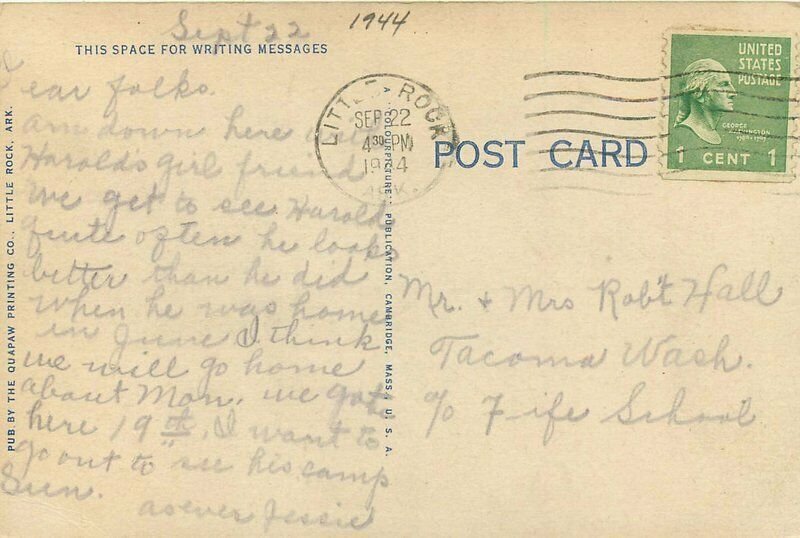 Sept 22
1944
THIS SPACE FOR WRITING MESSAGES
Dear folks.
am down here with
Harold's girl friend
we get to see Harold
quite often he looks
better than he did
when he was home
in June I think
we will go home
about Mon. we got
here 19th. I want to
go out to see his camp
Sun.
as ever Jessie
PUB. BY THE QUAPAW PRINTING CO., LITTLE ROCK, ARK.
A COLOURPICTURE PUBLICATION, CAMBRIDGE, MASS., U. S. A.
LITTLE ROCK
SEP 22
4 30 PM
1944
ARK.
POST CARD
UNITED
STATES
POSTAGE
GEORGE
WASHINGTON
1789-1797
1 CENT 1
Mr. + Mrs Rob't Hall
Tacoma Wash.
c/o Fife School